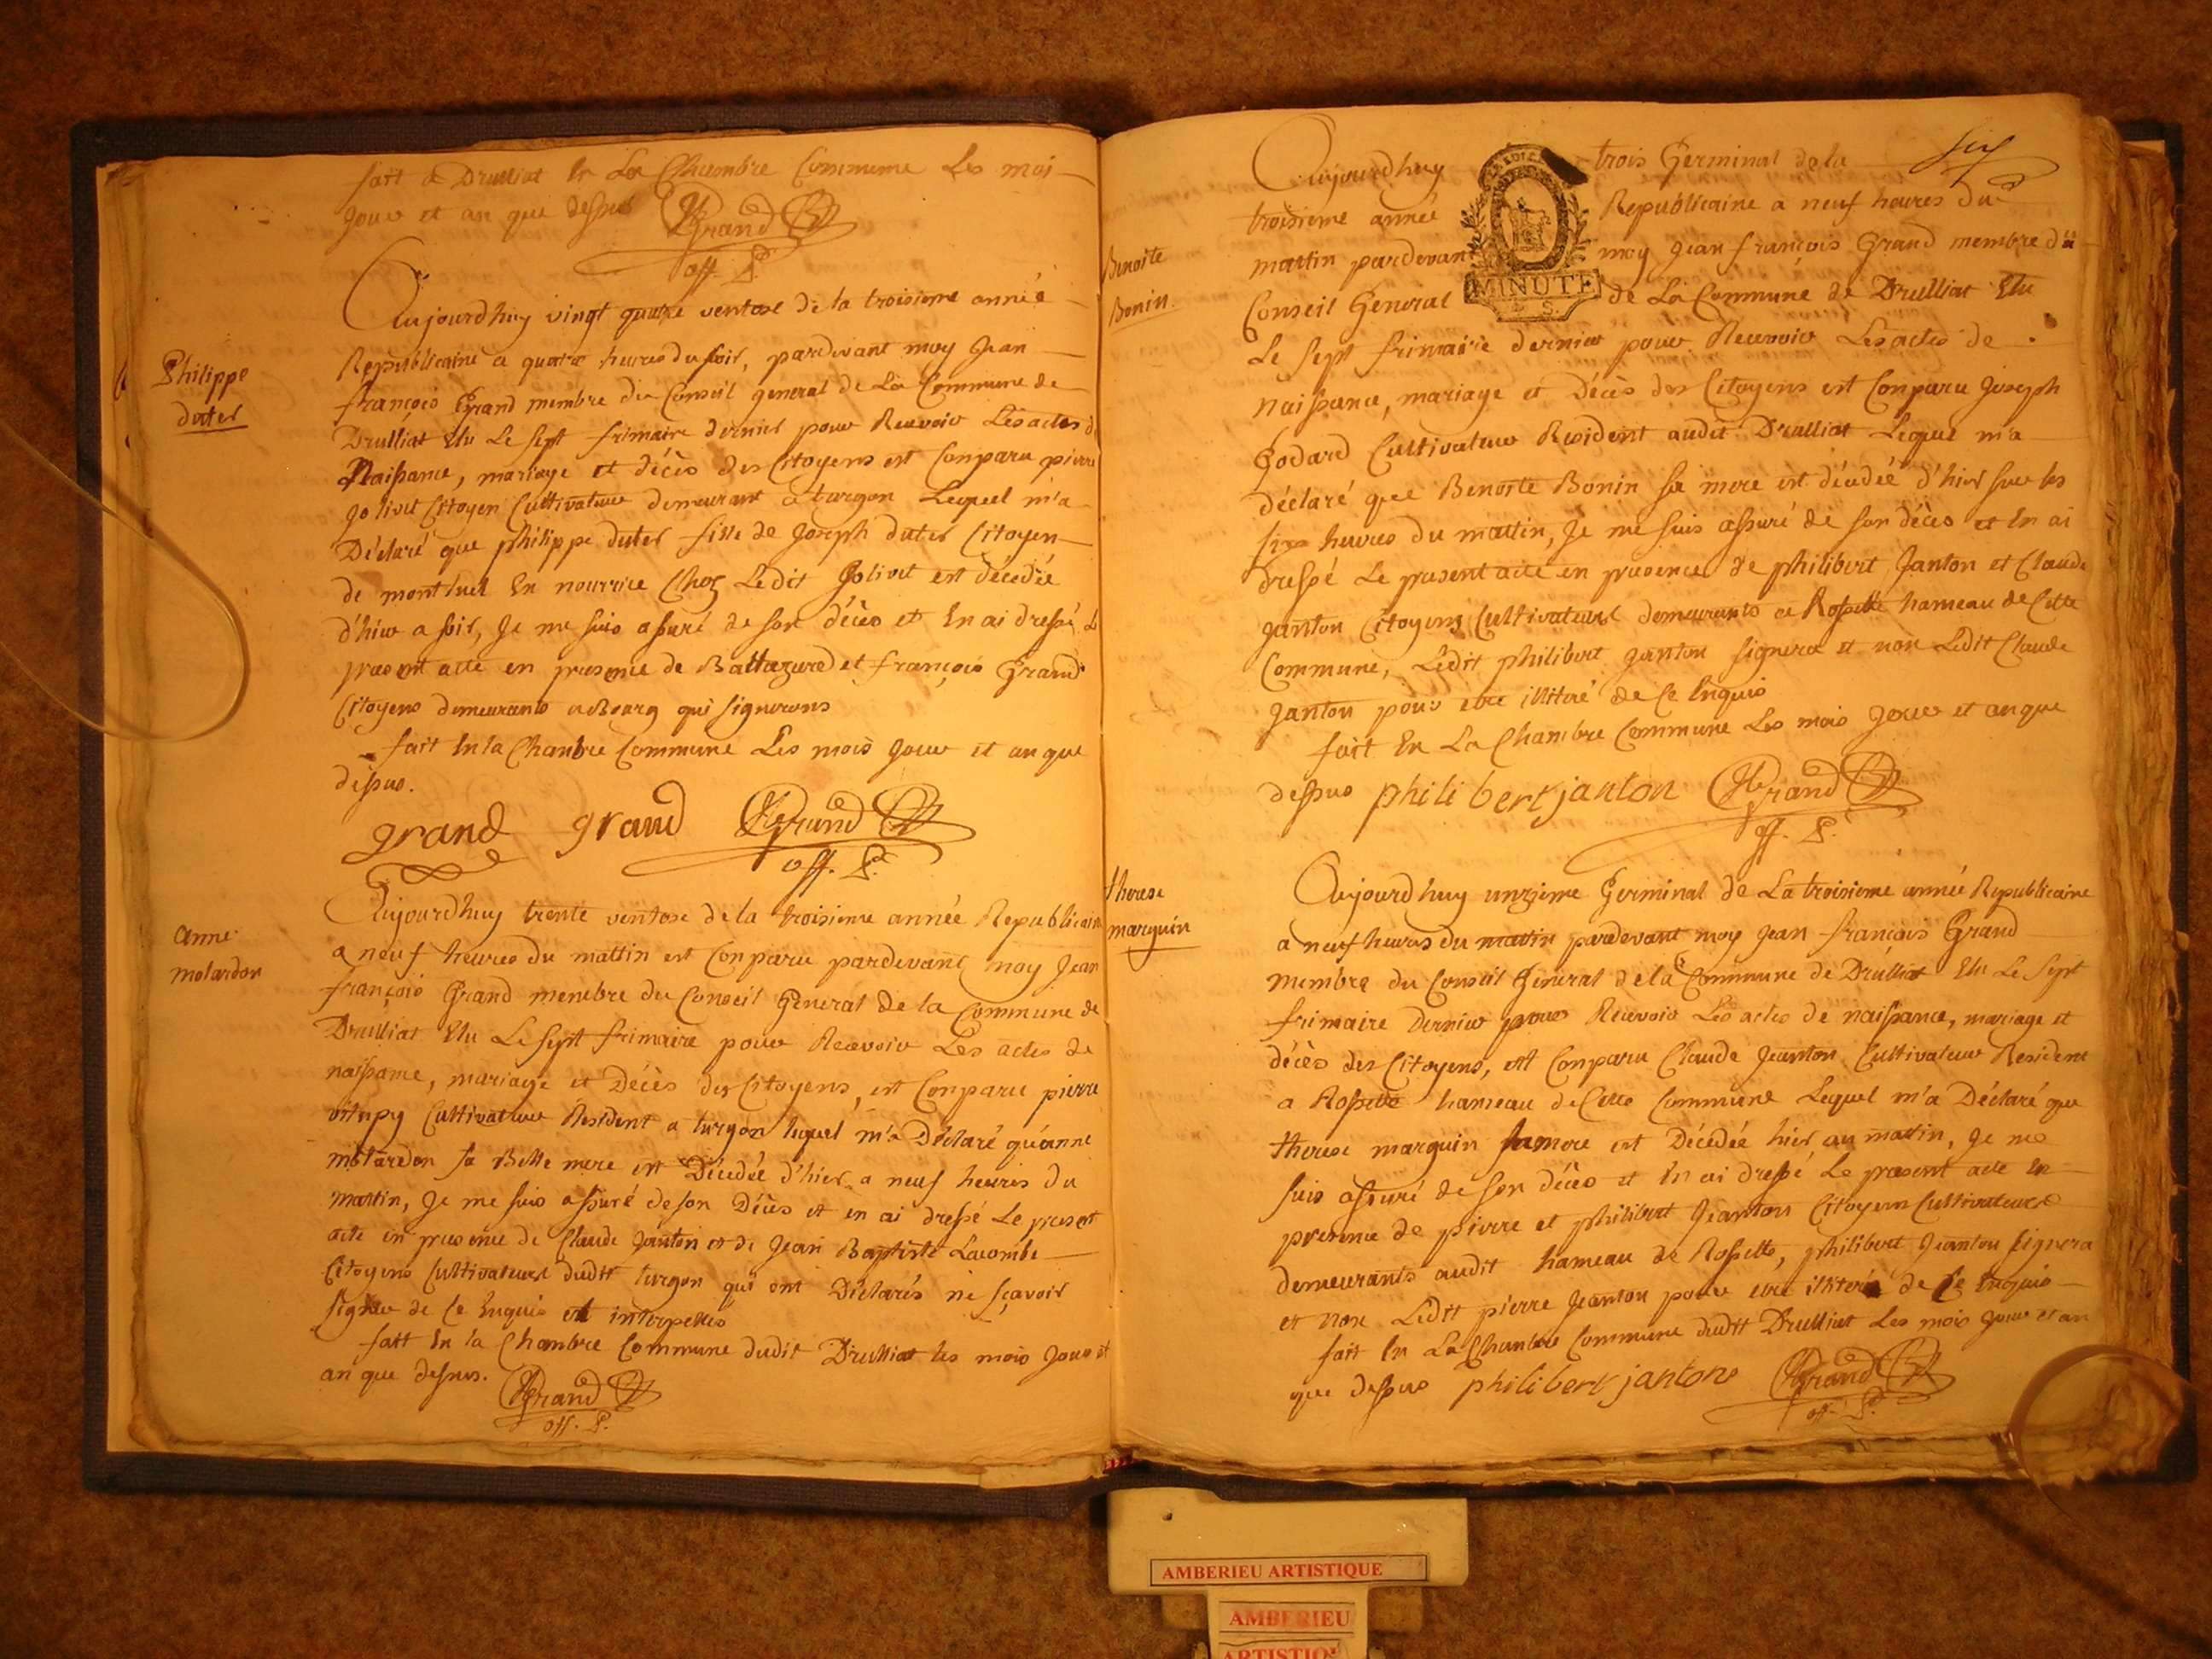 fait a Drulliat En La Chambre Commune Les mois
Jour et an que dessus Grand
off. P.
Aujourdhuy vingt quatre ventose de la troisieme année
Republicaine a quatre heures du soir, pardevant moy Jean
Philippe
duter
françois Grand membre du Conseil general de La Commune de
Drulliat Elu Le sept frimaire dernier pour Recevoir Les actes de
Naissance, mariage et décès des Citoyens est Conparu pierre
Jolivet Citoyen Cultivateur demeurant a turgon Lequel m'a
Déclaré que philippe duter fille de Joseph duter Citoyen
de montluel En nourrice Chez Ledit Jolivet est décédée
d'hier a soir, Je me suis assuré de son décès et En ai dressé Le
present acte en presence de Baltazard et françois Grand
Citoyens demeurants a Bourg qui signerons
fait En la Chambre Commune Les mois Jour et an que
dessus.
grand grand Grand
off. P.
Aujourdhuy trente ventose de la troisieme année Republicaine
anne
molardon
a neuf heures du mattin est Conparu pardevant moy Jean
françois Grand membre du Conseil General de la Commune de
Drulliat Elu Le sept frimaire pour Recevoir Les actes de
naissance, mariage et Décès des Citoyens, est Conparu pierre
Cultivateur Resident a turgon lequel m'a Déclaré qu'anne
molardon sa Belle mere est Décédée d'hier a neuf heures du
mattin, Je me suis assuré de son Décès et en ai dressé Le present
acte en presence de Claude Janton et de Jean Baptiste Lacombe
Citoyens Cultivateurs dudit turgon qui ont Déclarés ne sçavoir
signer de Ce Enquis et interpellés
fait En la Chambre Commune dudit Drulliat les mois Jour et
an que dessus. Grand
off. P.
six
Aujourdhuy trois Germinal de la
troisieme année Republicaine a neuf heures du
MINUTE
Benoite
Bonin
mattin pardevant moy Jean françois Grand membre du
Conseil General de La Commune de Drulliat Elu
Le sept frimaire dernier pour Recevoir Les actes de
Naissance, mariage et Décès des Citoyens est Conparu Joseph
Godard Cultivateur Resident audit Drulliat Lequel m'a
déclaré que Benoite Bonin sa mere est décédée d'hier sur les
six heures du mattin, Je me suis assuré de son décès et En ai
dressé Le present acte en presence de philibert Janton et Claude
Janton Citoyens Cultivateurs demeurants a Rossette hameau de Cette
Commune, Ledit philibert Janton signera et non Ledit Claude
Janton pour etre illiteré de Ce Enquis
fait En La Chambre Commune Les mois Jour et an que
dessus philibert janton Grand
off. P.
therese
marguin
Aujourdhuy unzieme Germinal de La troisieme année Republicaine
a neuf heures du mattin pardevant moy Jean françois Grand
membre du Conseil General de la Commune de Drulliat Elu Le sept
frimaire dernier pour Recevoir Les actes de naissance, mariage et
décès des Citoyens, est Conparu Claude Jeanton Cultivateur Resident
a Rossette hameau de Cette Commune Lequel m'a Déclaré que
therese marguin sa mere est Décédée hier au mattin, Je me
suis assuré de son décès et En ai dressé Le present acte En
presence de pierre et philibert Jeanton Citoyens Cultivateurs
demeurants audit hameau de Rossette, philibert Jeanton signera
et non Ledit pierre Jeanton pour etre illiteré de Ce Enquis
fait En La Chambre Commune dudit Drulliat Les mois Jour et an
que dessus philibert jantons Grand
off. P.
AMBERIEU ARTISTIQUE
AMBERIEU
ARTISTIQUE